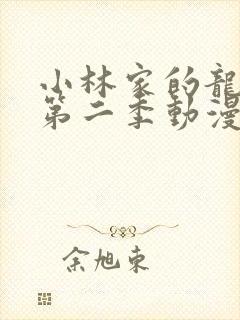 小林家的龍
第二季動漫
余旭東